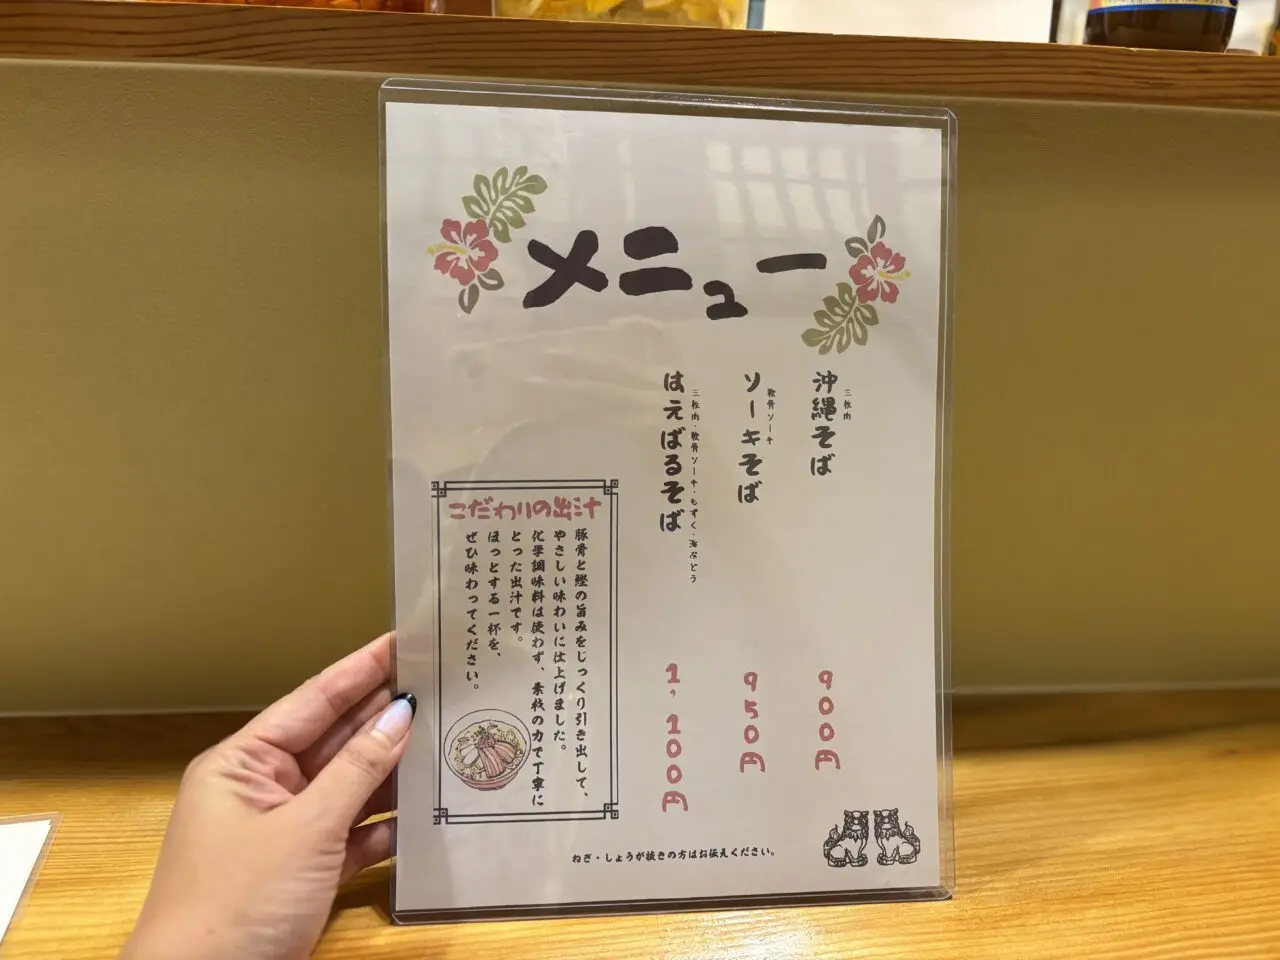 メニュー
三枚肉
沖縄そば
900円
軟骨ソーキ
ソーキそば
950円
三枚肉・軟骨ソーキ・もずく・海ぶどう
はえばるそば
1,100円
こだわりの出汁
豚骨と鰹の旨みをじっくり引き出して、
やさしい味わいに仕上げました。
化学調味料は使わず、素材の力で丁寧に
とった出汁です。
ほっとする一杯を、
ぜひ味わってください。
ねぎ・しょうが抜きの方はお伝えください。